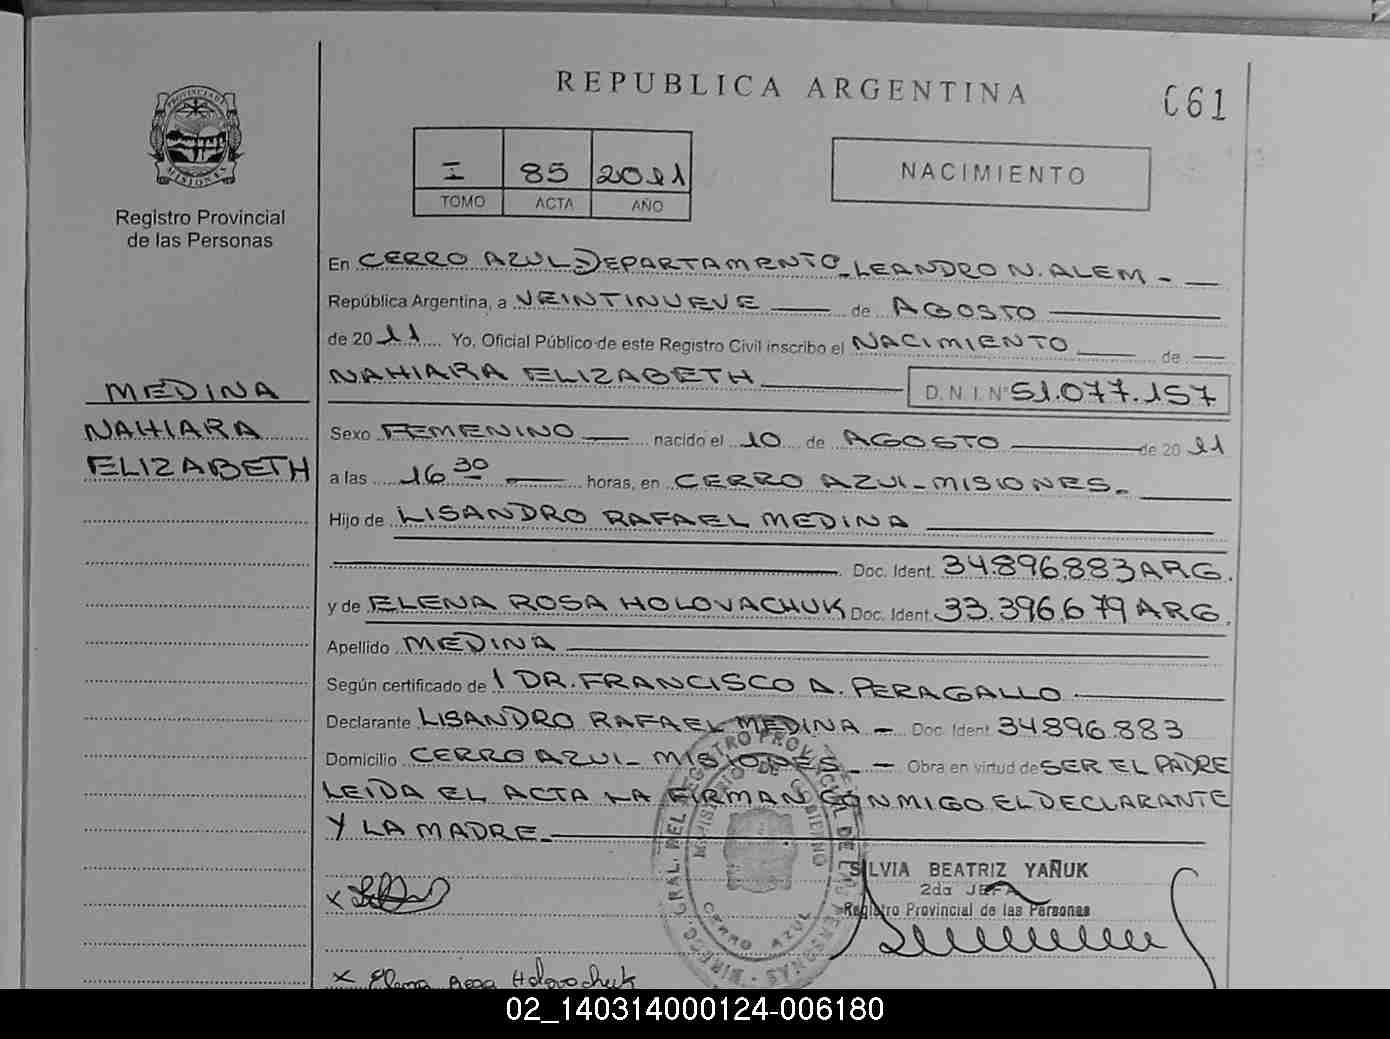 REPUBLICA ARGENTINA
061
PROVINCIA DE
MISIONES
Registro Provincial
de las Personas
I 85 2011
TOMO ACTA AÑO
NACIMIENTO
En CERRO AZUL-DEPARTAMENTO LEANDRO N. ALEM -
República Argentina, a VEINTINUEVE de AGOSTO
de 2011 Yo, Oficial Público de este Registro Civil inscribo el NACIMIENTO de
NAHIARA ELIZABETH D.N.I. Nº 51.077.157
MEDINA
NAHIARA
ELIZABETH
Sexo FEMENINO nacido el 10 de AGOSTO de 2011
a las 16 30 horas, en CERRO AZUL-MISIONES.
Hijo de LISANDRO RAFAEL MEDINA
Doc. Ident. 34.896.883 ARG.
y de ELENA ROSA HOLOVACHUK Doc. Ident. 33.396.679 ARG.
Apellido MEDINA
Según certificado de DR. FRANCISCO A. PERAGALLO
Declarante LISANDRO RAFAEL MEDINA - Doc. Ident. 34896.883
Domicilio CERRO AZUL- MISIONES - Obra en virtud de SER EL PADRE
LEIDA EL ACTA LA FIRMAN CONMIGO EL DECLARANTE
Y LA MADRE
SILVIA BEATRIZ YAÑUK
2da JEFA
Registro Provincial de las Personas
DIREC. GRAL. DEL REGISTRO PROVINCIAL DE LAS PERSONAS
MINISTERIO DE GOBIERNO
CERRO AZUL
x
x Elena Rosa Holovachuk
02_140314000124-006180